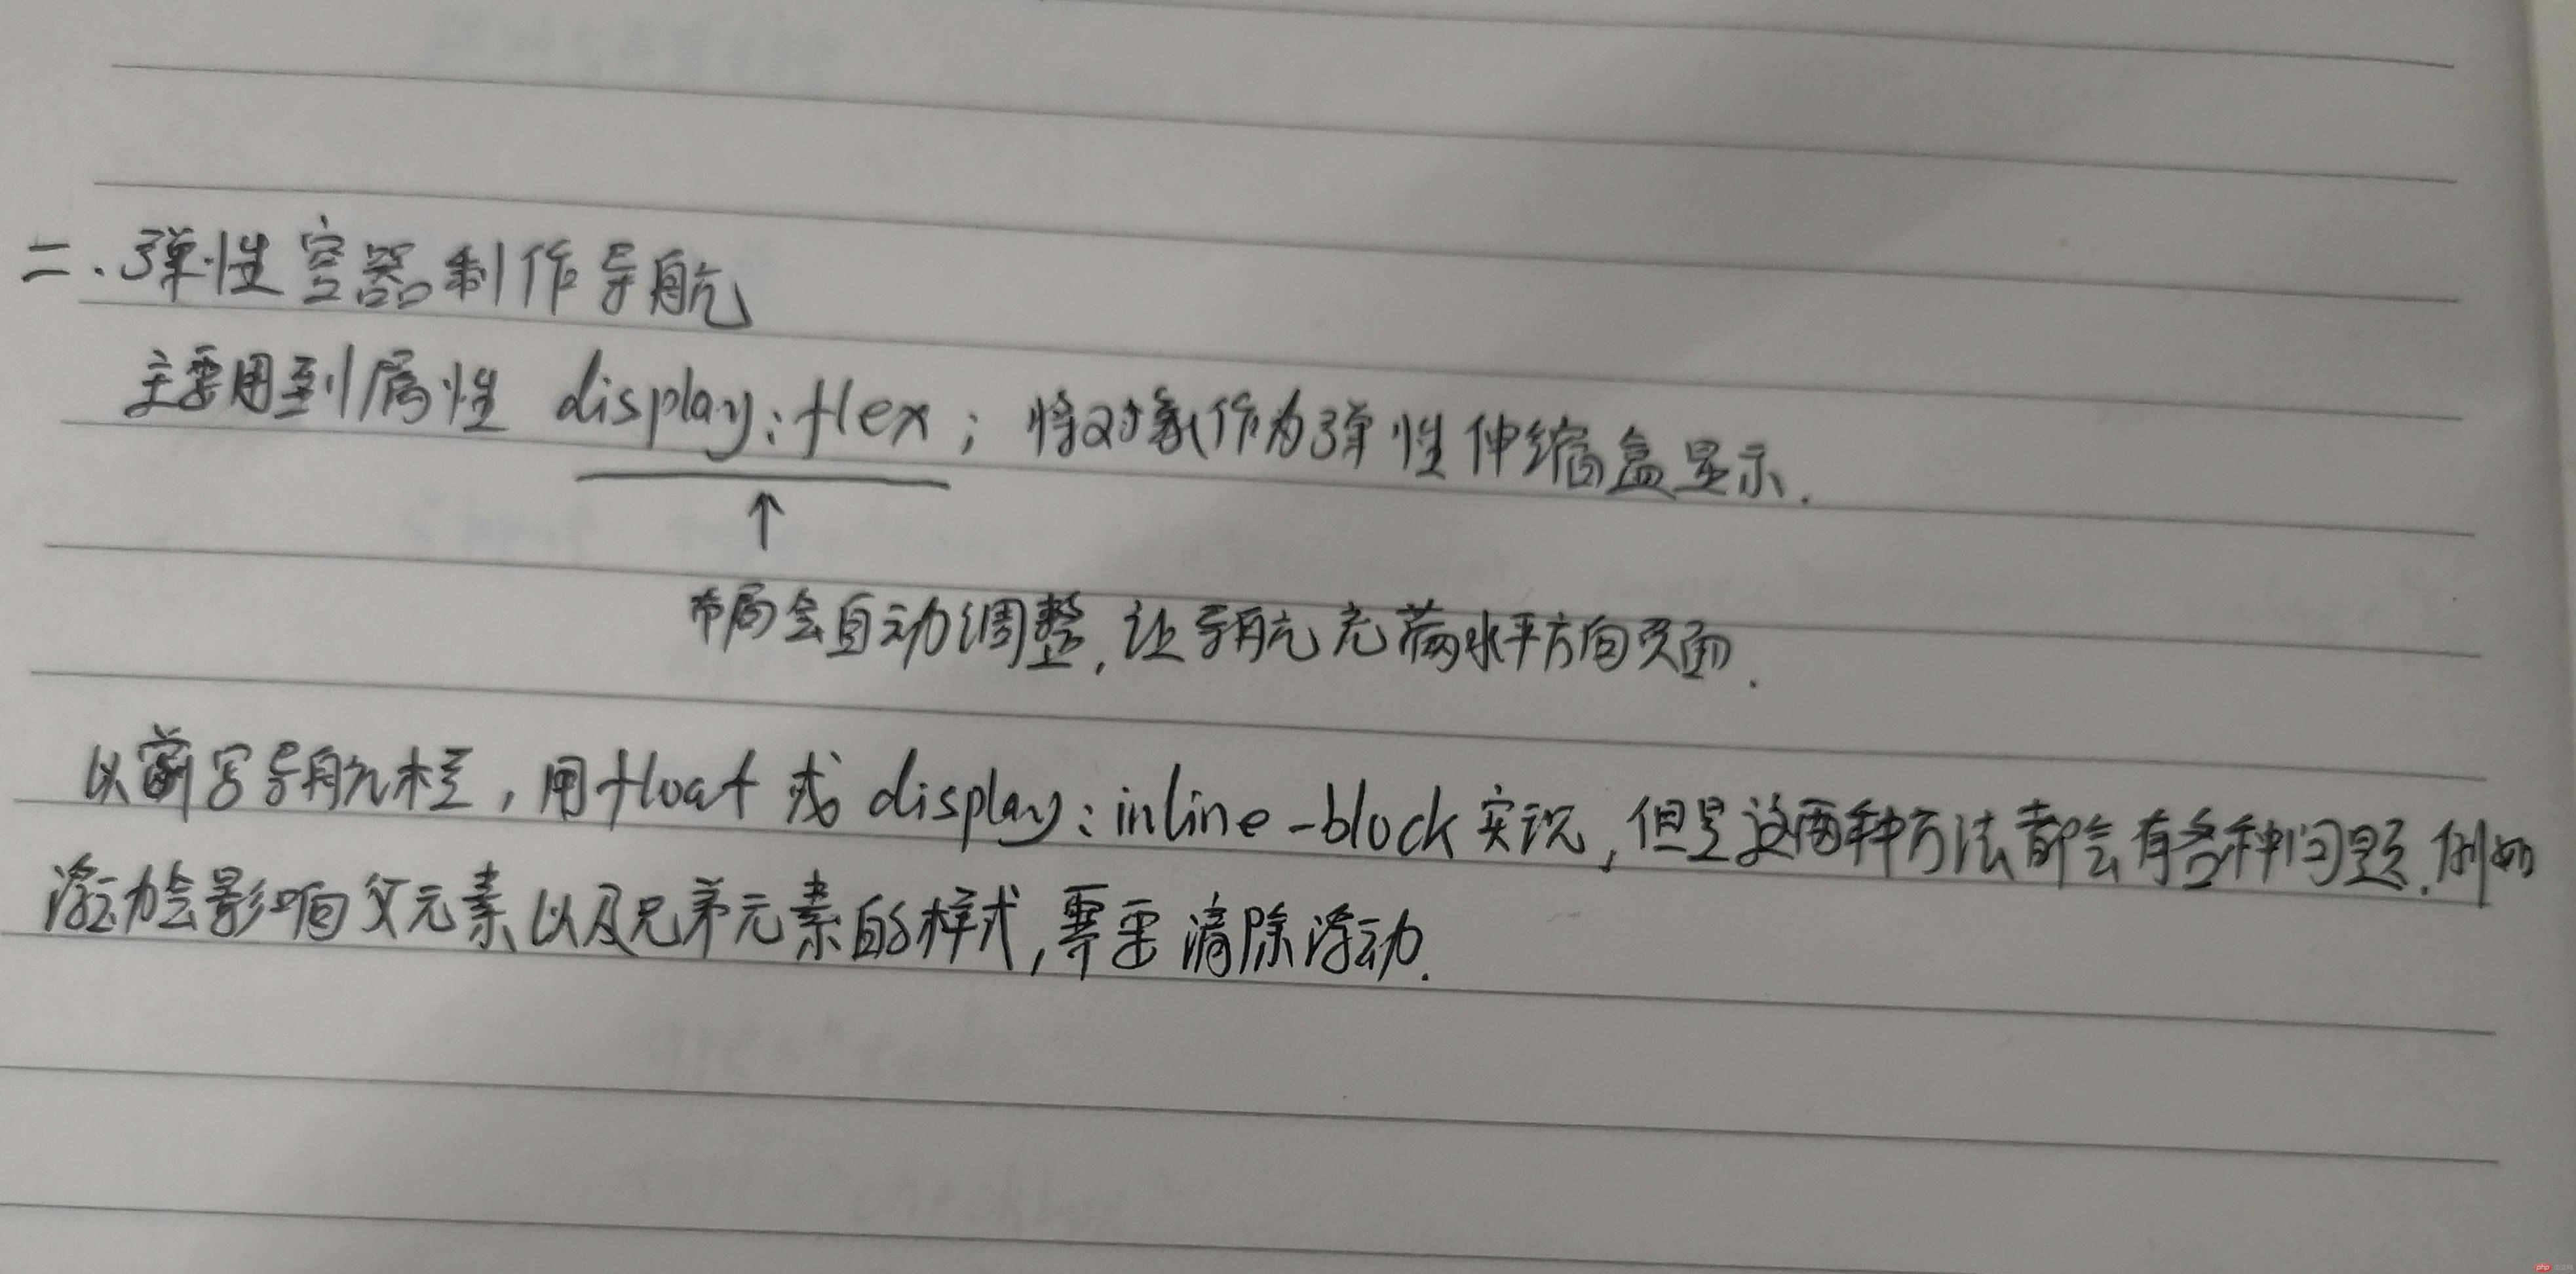 二.弹性容器制作导航
主要用到属性 display:flex; 将对象作为弹性伸缩盒显示.
↑
布局会自动调整,让导航充满水平方向页面.
以前写导航栏,用float或display:inline-block实现,但是这两种方法都会有各种问题.例如
浮动会影响父元素以及兄弟元素的样式,需要清除浮动.
php